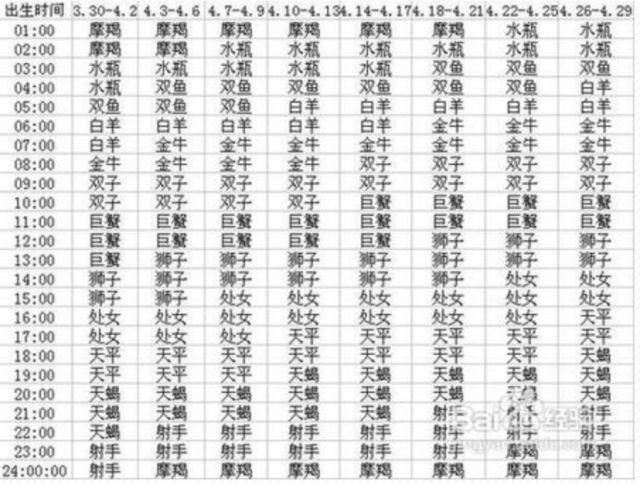 出生时间 3.30-4.2 4.3-4.6 4.7-4.9 4.10-4.13 4.14-4.17 4.18-4.21 4.22-4.25 4.26-4.29
01:00 摩羯 摩羯 摩羯 摩羯 摩羯 摩羯 水瓶 水瓶
02:00 摩羯 摩羯 水瓶 水瓶 水瓶 水瓶 水瓶 水瓶
03:00 水瓶 水瓶 水瓶 水瓶 水瓶 双鱼 双鱼 双鱼
04:00 水瓶 双鱼 双鱼 双鱼 双鱼 双鱼 双鱼 白羊
05:00 双鱼 双鱼 双鱼 白羊 白羊 白羊 白羊 白羊
06:00 白羊 白羊 白羊 白羊 白羊 金牛 金牛 金牛
07:00 白羊 金牛 金牛 金牛 金牛 金牛 金牛 金牛
08:00 金牛 金牛 金牛 金牛 双子 双子 双子 双子
09:00 双子 双子 双子 双子 双子 双子 双子 双子
10:00 双子 双子 双子 双子 巨蟹 巨蟹 巨蟹 巨蟹
11:00 巨蟹 巨蟹 巨蟹 巨蟹 巨蟹 巨蟹 巨蟹 巨蟹
12:00 巨蟹 巨蟹 巨蟹 巨蟹 巨蟹 狮子 狮子 狮子
13:00 巨蟹 狮子 狮子 狮子 狮子 狮子 狮子 狮子
14:00 狮子 狮子 狮子 狮子 狮子 狮子 处女 处女
15:00 狮子 狮子 处女 处女 处女 处女 处女 处女
16:00 处女 处女 处女 处女 处女 处女 处女 天平
17:00 处女 处女 处女 天平 天平 天平 天平 天平
18:00 天平 天平 天平 天平 天平 天平 天平 天蝎
19:00 天平 天平 天平 天蝎 天蝎 天蝎 天蝎 天蝎
20:00 天蝎 天蝎 天蝎 天蝎 天蝎 天蝎 天蝎 天蝎
21:00 天蝎 天蝎 天蝎 天蝎 天蝎 射手 射手
22:00 天蝎 射手 射手 射手 射手 射手 射手 射手
23:00 射手 射手 射手 射手 射手 射手 摩羯 摩羯
24:00:00 射手 摩羯 摩羯 摩羯 摩羯 摩羯 摩羯 摩羯